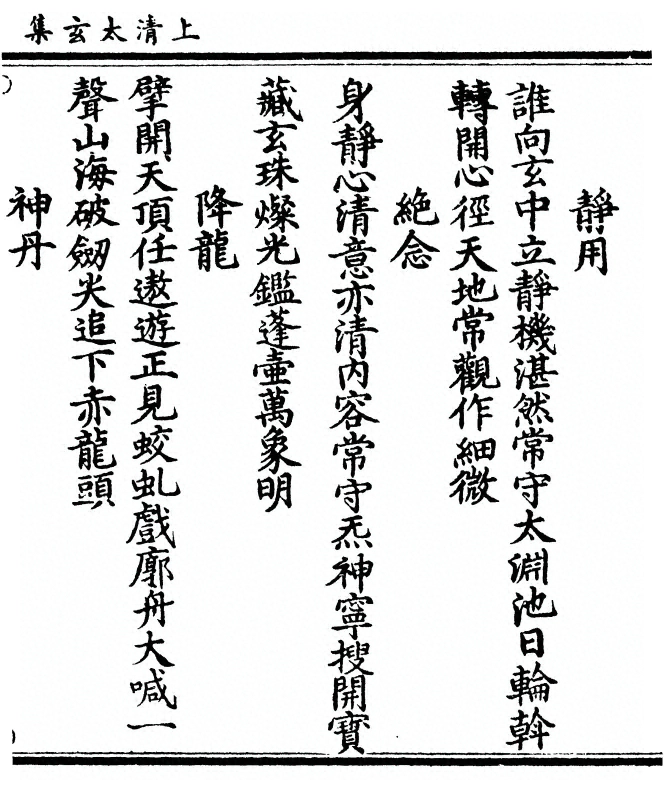 上清太玄集
靜用
誰向玄中立靜機湛然常守太淵池日輪斡
轉開心徑天地常觀作細微
絕念
身靜心清意亦清內容常守炁神寧搜開寶
藏玄珠燦光鑑蓬壺萬象明
降龍
擘開天頂任遨遊正見蛟虬戲廓舟大喊一
聲山海破劒尖追下赤龍頭
神丹